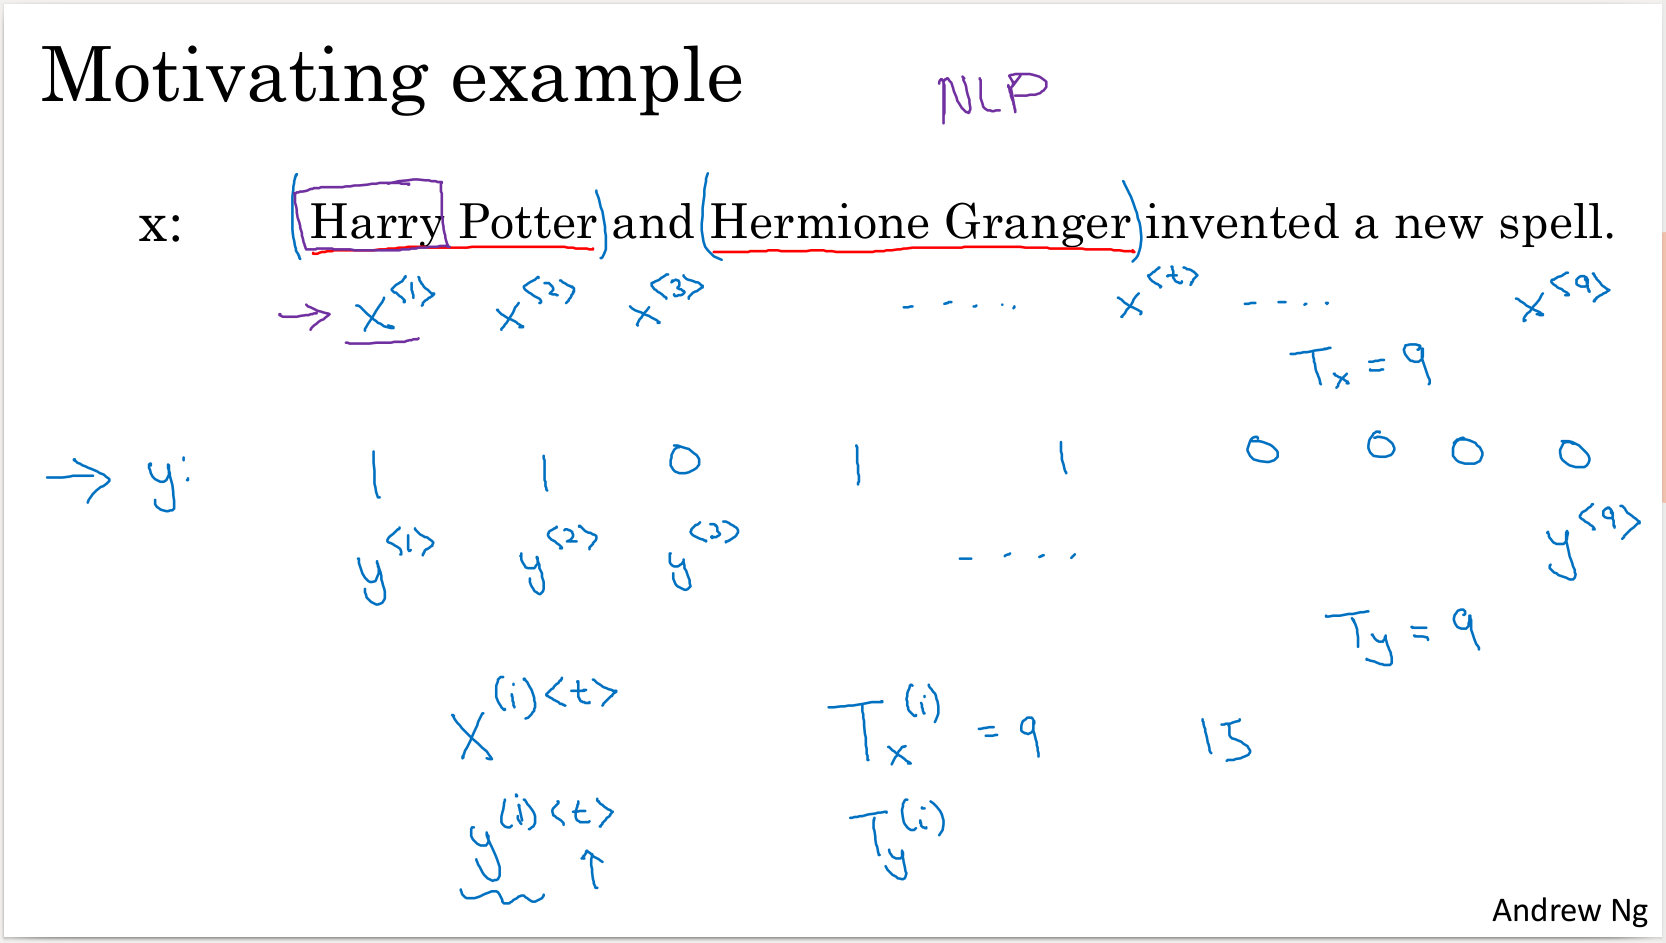 Motivating example NLP
x: Harry Potter and Hermione Granger invented a new spell.
→ x<1> x<2> x<3> - - · · · x<t> - - · · x<9>
Tx = 9
→ y: 1 1 0 1 1 0 0 0 0
y<1> y<2> y<3> - · · · y<9>
Ty = 9
X(i)<t> Tx(i) = 9 15
y(i)<t> Ty(i)
↑
Andrew Ng